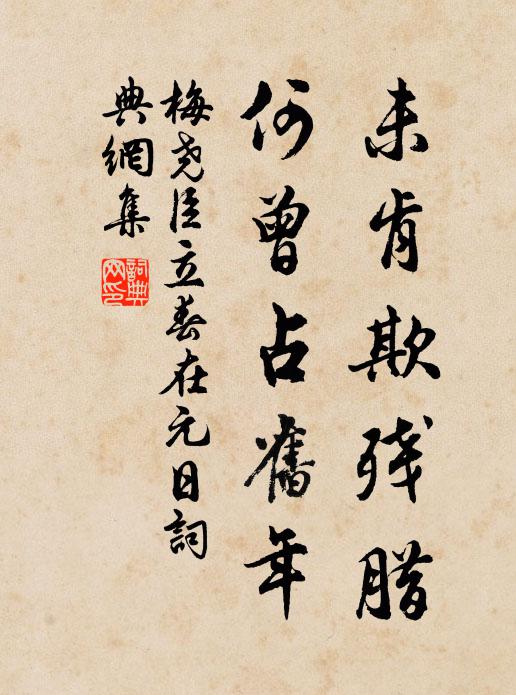 未肯欺残腊
何曾占舊年
梅尧臣立春在元日詞
典網集
詞典
网印